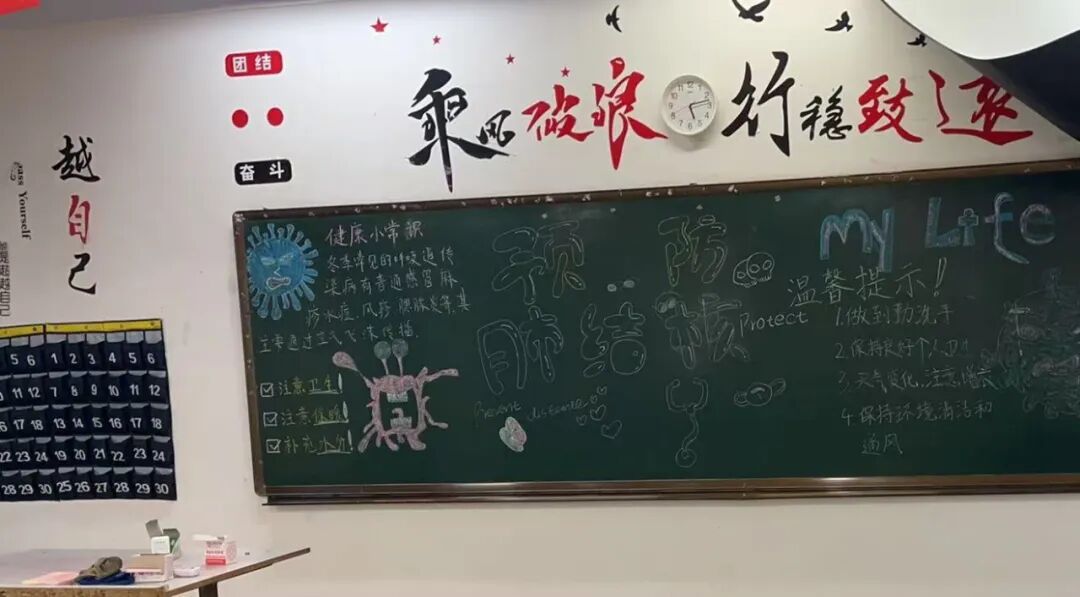 团结
奋斗
乘风破浪
行稳致远
越自己
Yourself
健康小常识
冬季常见的呼吸道传
染病有普通感冒麻
疹水痘、风疹、腮腺炎等,其
主要通过空气飞沫传播
注意卫生!
注意保暖!
补充水分!
预防
肺结核
Protect
Prevent disease
My Life
温馨提示!
1.做到勤洗手
2.保持良好个人卫生
3.天气变化,注意增衣
4.保持环境清洁和
通风
5 6 1 2 3 4 5 6
11 12 7 8 9 10 11 12
17 18 13 14 15 16 17 18
22 23 24 19 20 21 22 23 24
28 29 30 25 26 27 28 29 30